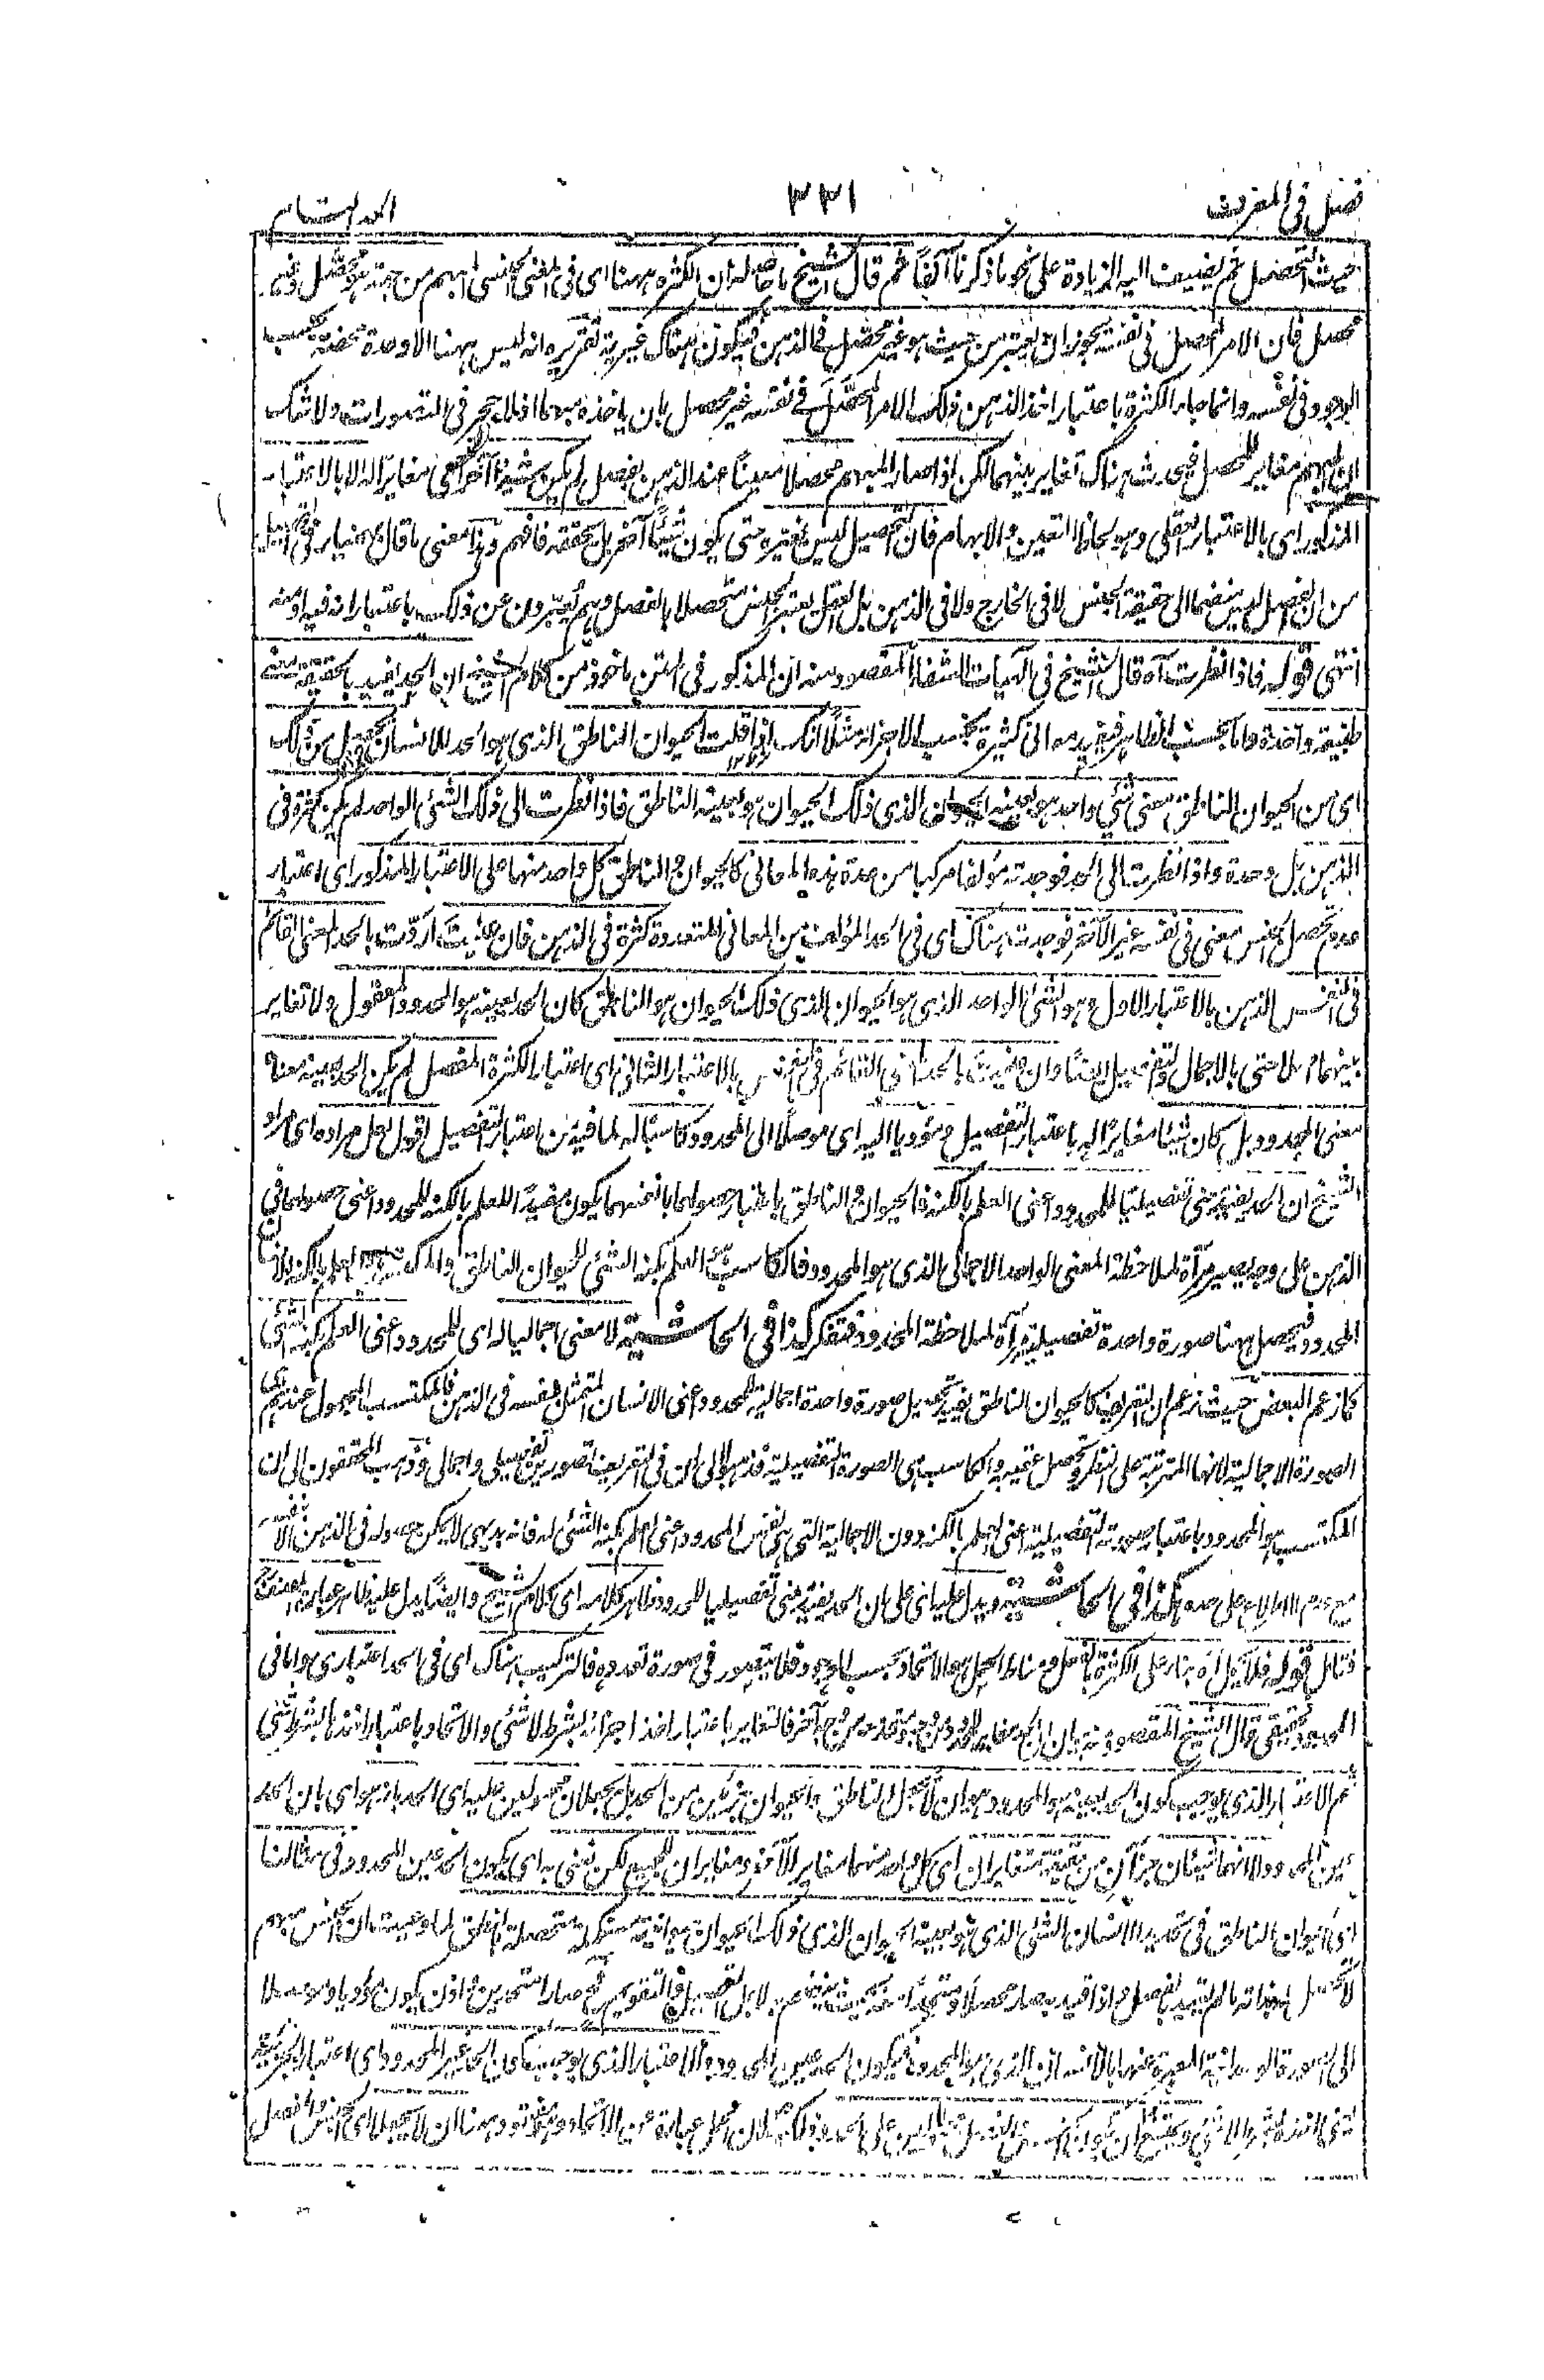 فصل في المعرف
٣٣١
الحد التام
حيث التحصل ثم يضيف اليه الزيادة على نحو ما ذكرنا آنفاً ثم قال الشيخ ما حاصله ان الكثرة ههنا اى فى المعنى الجنسى المبهم من جهة هو محصل وغير
محصل فان الامر المحصل فى نفسه يجوز ان يعتبر من حيث هو غير محصل فى الذهن فيكون هناك غيرية تقريره انه ليس ههنا الا وحدة محضة بحسب
الوجود فى نفسه وانما جاء الكثرة باعتبار اخذ الذهن ذلك الامر المحصل فى نفسه غير محصل بان ياخذه مبهما اذ لا حجر فى التصورات ولا شك
ان المبهم مغاير للمحصل فيحدث هناك تغاير بينهما لكن اذا صار المبهم محصلا معيناً عند الذهن بالفصل لم يكن شيئاً آخر اى مغايراً له الا بالاعتبار
المذكور اى بالاعتبار العقلى وهو بحاظ التعين والابهام فان التحصيل ليس يغيره حتى يكون شيئاً آخر بل يحققه فافهم وهذا معنى ما قال بهمنيار فى التحصيل
من ان الفصل ليس منضما الى حقيقة الجنس لا فى الخارج ولا فى الذهن بل العقل يعتبر الجنس متحصلا بالفصل وهم يعبرون عن ذلك باعتبار انه فيه او منه
انتهى قوله فاذا نظرت آه قال الشيخ فى الهيات الشفاء المقصود منه ان المذكور فى المتن ماخوذ من كلام الشيخ ان الحد يفيد بالحقيقة
طبيعة واحدة واما بحسب الظاهر فيفيد معانى كثيرة بحسب الاجزاء مثلا انك اذا قلت الحيوان الناطق الذى هو الحد للانسان يحصل من ذلك
اى من الحيوان الناطق معنى شئ واحد هو بعينه الحيوان الذى ذلك الحيوان هو بعينه الناطق فاذا نظرت الى ذلك الشئ الواحد لم يكن كثرة فى
الذهن بل وحدة واذا نظرت الى الحد فوجدته مؤلفا مركبا من عدة هذه المعانى كالحيوان والناطق كل واحد منها على الاعتبار المذكور اى اعتبار
عدم تحصل الجنس معنى فى نفسه غير الآخر فوجدت هناك اى فى الحد المؤلف من المعانى المتعددة كثرة فى الذهن فان عنيت اى اردت بالحد المعنى القائم
فى النفس الذهن بالاعتبار الاول وهو الشئ الواحد الذى هو الحيوان الذى ذلك الحيوان هو الناطق كان الحد بعينه هو المحدود المعقول ولا تغاير
بينهما اصلا حتى بالاجمال والتفصيل ايضاً وان عنيت بالحد المعنى القائم فى النفس بالاعتبار الثانى اى اعتبار الكثرة المفصل لم يكن الحد بعينه معناه
معنى المحدود بل كان شيئا مغايراً له باعتبار التفصيل ومؤديا اليه اى موصلا الى المحدود كاسبا له لما فيه من اعتبار التفصيل اقول لعل مراده اى مراد
الشيخ ان الحد يفيد معنى تفصيليا للمحدود اعنى العلم بالكنه فالحيوان والناطق باعتبار حصولهما بانفسهما يكون مفيداً للعلم بالكنه للمحدود اعنى حصولهما فى
الذهن على وجه يصير مرآة لملاحظة المعنى الواحد الاجمالى الذى هو المحدود فالكاسب العلم بكنه الشئ للحيوان الناطق والمكتسب العلم بالكنه للانسان
المحدود فيحصل ههنا صورة واحدة تفصيلية مرآة لملاحظة المحدود فتفكر كذا فى الحاشية لا معنى اجماليا له اى للمحدود اعنى العلم بكنه الشئ
كما زعم البعض حيث زعم ان التعريف كالحيوان الناطق يفيد تحصيل صورة واحدة اجمالية للمحدود اعنى الانسان المتمثل بنفسه فى الذهن فالمكتسب المجهول عندهم هى
الصورة الاجمالية لانها المترتبة على النظر ويحصل عقيبه والكاسب هى الصورة التفصيلية فذهبوا الى ان فى التعريف تصورين تفصيلى واجمالى وذهب المحققون الى ان
المكتسب هو المحدود باعتبار صورته التفصيلية اعنى العلم بالكنه دون الاجمالية التى هى نفس المحدود اعنى العلم بكنه الشئ له فانه بديهى لا يمكن حصوله فى الذهن الا بنفسه
كذا فى الحاشية ويدل عليه اى على ان الحد يفيد معنى تفصيليا للمحدود ظاهر كلامه اى كلام الشيخ وايضاً يدل عليه ظاهر عبارة المصنف
فتامل قوله فلا يحمل آه بناء على الكثرة بالفعل ومناط الحمل هو الاتحاد بحسب الوجود فلا يتصور فى صورة تعدده فالتركيب هناك اى فى الحد اعتبارى وانما فى
المحدود حقيقى قال الشيخ المقصود منه بيان ان الحد مغاير للمحدود من وجه ومتحد معه من وجه آخر فالتغاير باعتبار اخذ اجزائه بشرط لا شئ والاتحاد باعتبار اخذها لا بشرط شئ
ثم الاعتبار الذى يوجب كون الحد بعينه هو المحدود هو ان لا يجعل الناطق والحيوان جزئين من الحد بل يجعلان محمولين عليه اى الحد بانه هو اى بان الحد
عين المحدود لا انهما شيئان جزآن من حقيقة متغايران اى كل واحد منهما مغاير الآخر ومغايران للجميع لكن نعنى به اى بكون الحد عين المحدود فى مثالنا
اى الحيوان الناطق فى تحديد الانسان الشئ الذى هو بعينه الحيوان الذى ذلك الحيوان حيوانيته مستكملة متحصلة بالناطق لما وعيت ان الجنس مبهم
لا يتحصل بذاته ما لم يقيد بالفصل واذا قيد به صار محصلا ومتحداً معه بحيث بل التحصيل والتقويم ثم صارا متحدين فاذن يكون مؤديا وموصلا
الى الصورة الوحدانية المعبرة عنها بالانسان الذى هو المحدود فيكون الحد عين المحدود والاعتبار الذى يوجب كون الحد غير المحدود اى اعتبار الجزئية
لان الحمل عبارة عن الاتحاد